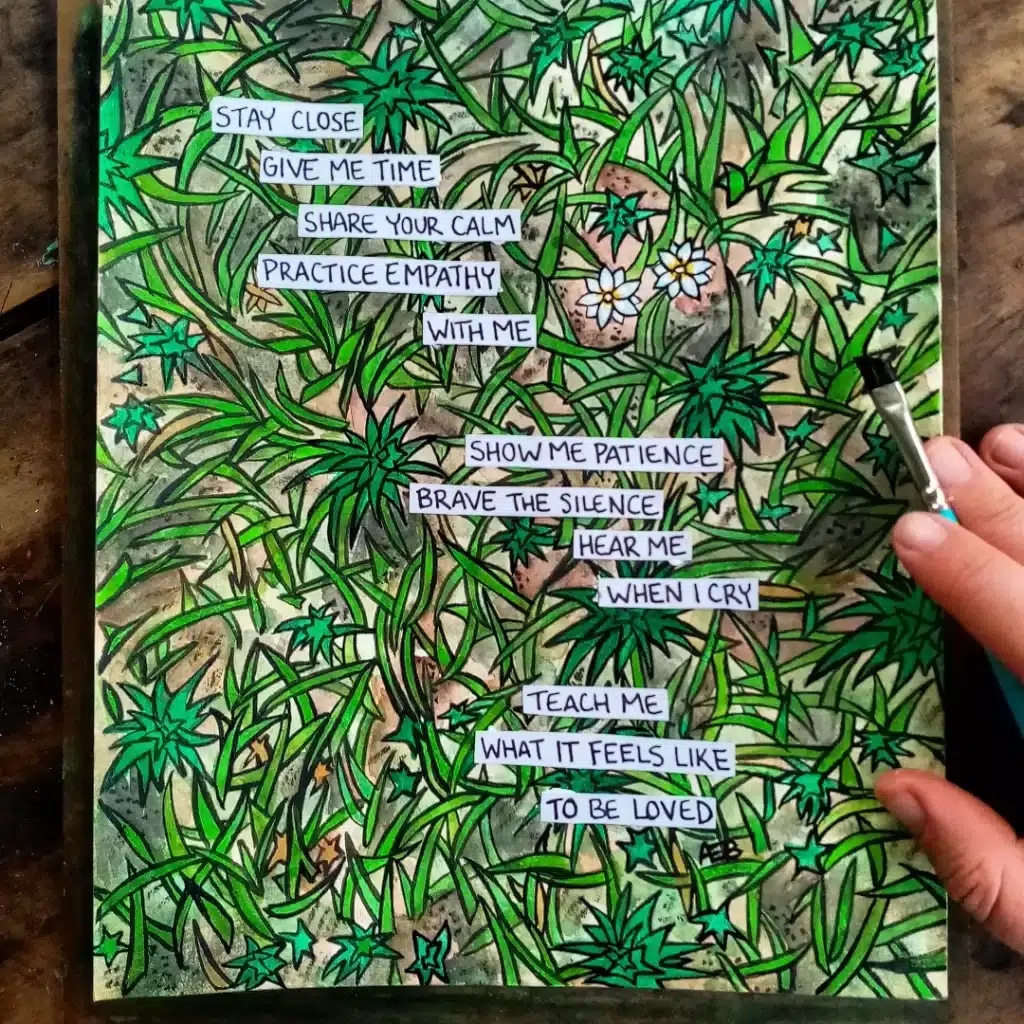 STAY CLOSE
GIVE ME TIME
SHARE YOUR CALM
PRACTICE EMPATHY
WITH ME
SHOW ME PATIENCE
BRAVE THE SILENCE
HEAR ME
WHEN I CRY
TEACH ME
WHAT IT FEELS LIKE
TO BE LOVED
AEB